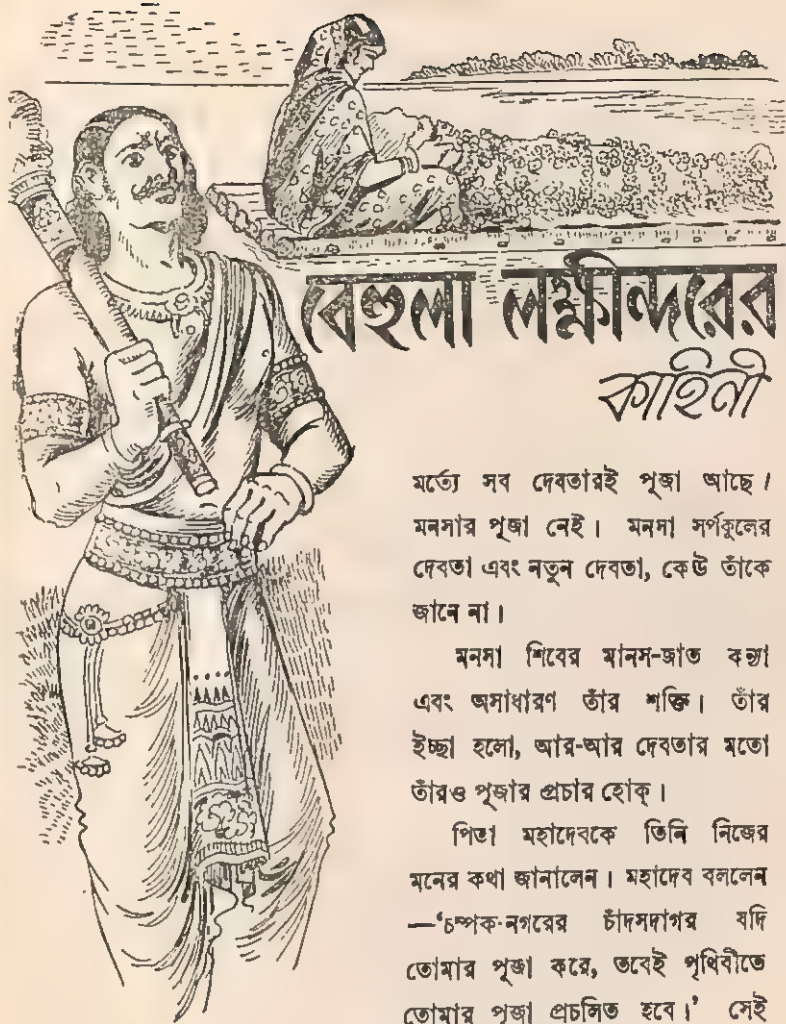 বেহুলা লক্ষ্মীন্দরের
কাহিনী
মর্ত্যে সব দেবতারই পূজা আছে।
মনসার পূজা নেই। মনসা সর্পকুলের
দেবতা এবং নতুন দেবতা, কেউ তাঁকে
জানে না।
মনসা শিবের মানস-জাত কন্যা
এবং অসাধারণ তাঁর শক্তি। তাঁর
ইচ্ছা হলো, আর-আর দেবতার মতো
তাঁরও পূজার প্রচার হোক্।
পিতা মহাদেবকে তিনি নিজের
মনের কথা জানালেন। মহাদেব বললেন
—‘চম্পক-নগরের চাঁদসদাগর যদি
তোমার পূজা করে, তবেই পৃথিবীতে
তোমার পূজা প্রচলিত হবে।’ সেই